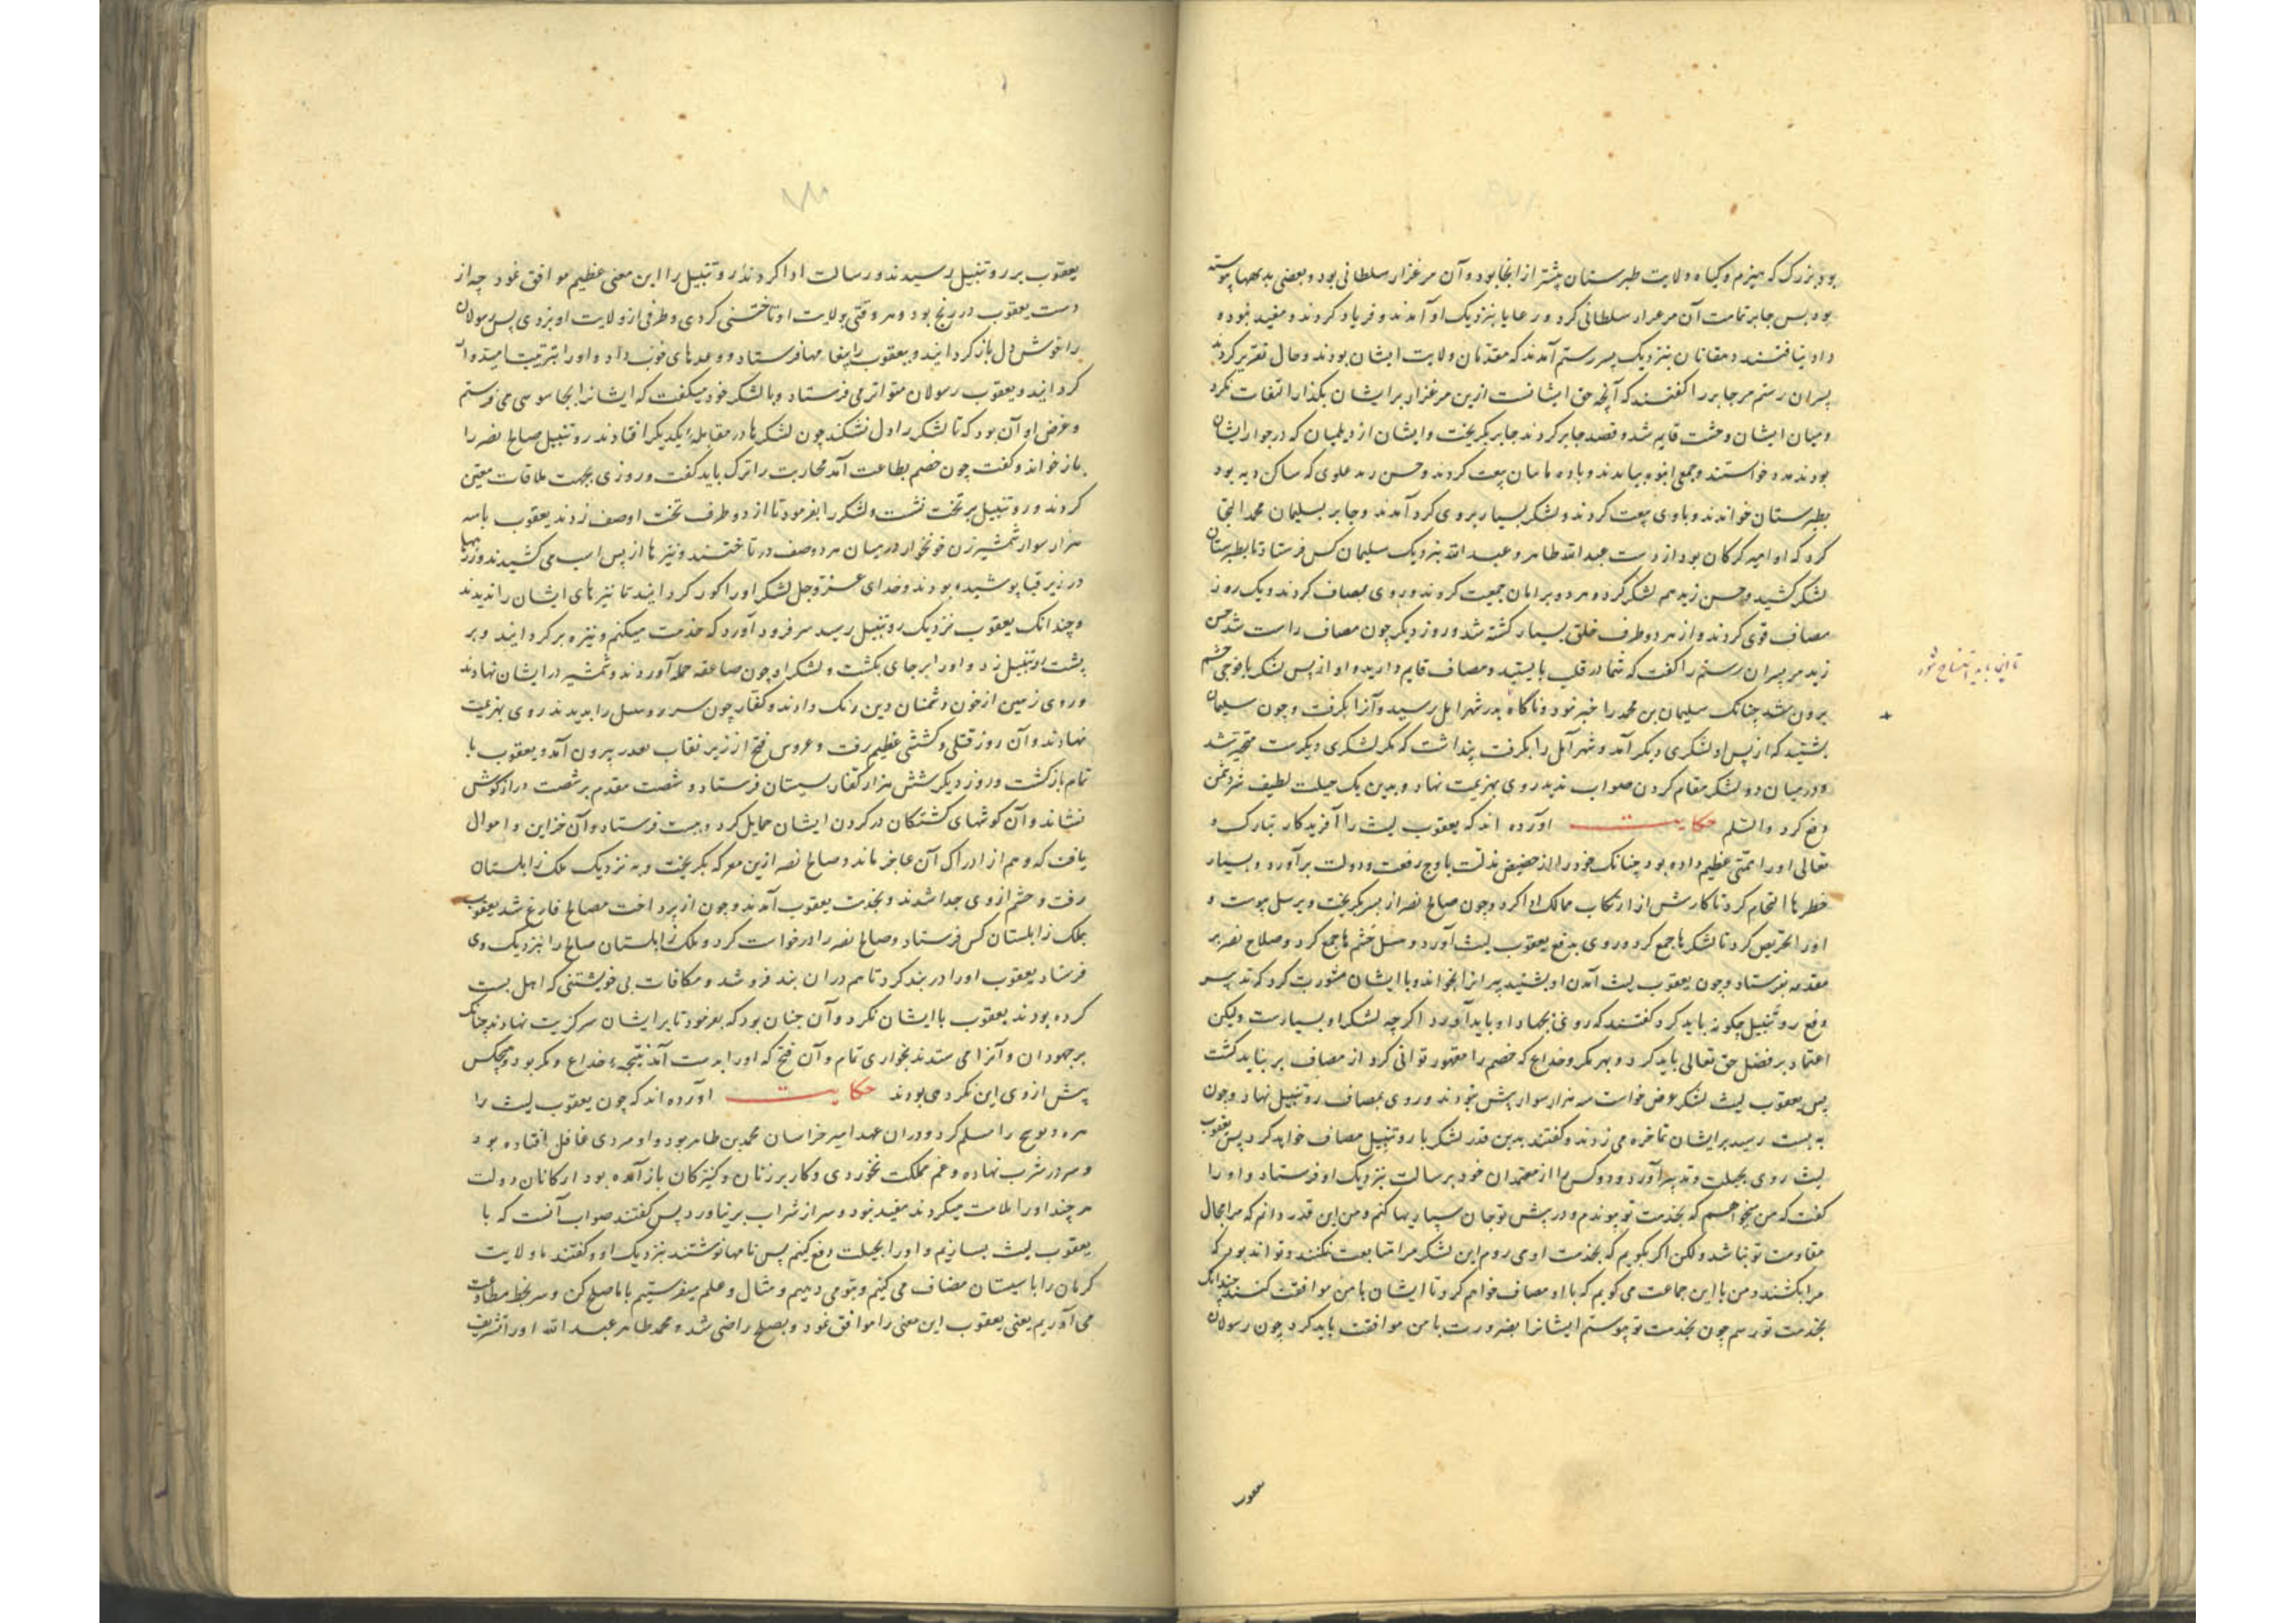 بود بزرگ که هیزم و گیاه ولایت طبرستان بیشتر از انجا بود و آن مرغزار سلطانی بود و بعضی بدیهها پیوسته
بود بس جابر تمامت آن مرغزار سلطانی کرد و رعایا بنزدیک او آمدند و فریاد کردند و مفید نبود و
داد نیافتند دهقانان بنزدیک پسر رستم آمدند که مقدمان ولایت ایشان بودند و حال تقریر کردند
پسران رستم مر جابر را گفتند که آنچه حق ایشانست ازین مرغزار بر ایشان بگذار التفات نکرد
و میان ایشان وحشت قایم شد و قصد جابر کردند جابر بگریخت و ایشان از دیلمیان که در جوار ایشان
بودند مدد خواستند و جمعی انبوه بیامدند و با وه بیعت کردند و حسن زید علوی که ساکن دیه بود
بطبرستان خواندند و با وی بیعت کردند و لشکر بسیار بر وی گرد آمدند و جابر بسلیمان محمد التجا
کرد که او امیر گرگان بود از دست عبد الله طاهر و عبد الله بنزدیک سلیمان کس فرستاد تا بطبرستان
لشکر کشید و حسن زید هم لشکر کرد و هر دو برابر جمعیت کردند و روی بمصاف کردند و یک روز
مصاف قوی کردند و از هر دو طرف خلق بسیار کشته شد و روز دیگر چون مصاف راست شد حسن
زید مر پسران رستم را گفت که شما در قلب بایستید و مصاف قایم دارید و او از پس لشکر با فوجی حشم
برون شد چنانک سلیمان بن محمد را خبر نبود و ناگاه بدر شهر امل رسید و آنرا بگرفت و چون سلیمان
بشنید که از پس او لشکری دیگر آمد و شهر آمل را بگرفت پنداشت که مگر لشکری دیگرست متحیر شد
و در میان دو لشکر مقام کردن صواب ندید روی بهزیمت نهاد و بدین یک حیلت لطیف شر دشمن
دفع کرد والسلم حکایت اورده اند که یعقوب لیث را آفریدگار تبارک و
تعالی او را همتی عظیم داده بود چنانک خود را از حضیض مذلت باوج رفعت و دولت برآورد و بسیار
خطرها اقتحام کرد تا کارش از ارتکاب ممالک ادا کرد و چون صالح نصر از بسر بگریخت و بر سل پیوست و
او را تحریص کرد تا لشکرها جمع کرد و روی بدفع یعقوب لیث آورد و سل حشم ها جمع کرد و صلاح نصر بر
مقدمه بفرستاد و چون یعقوب لیث آمدن او بشنید پیرانرا بخواند و با ایشان مشورت کرد که تدبیر
دفع روتبیل چگونه باید کرد گفتند که روی بجهاد او باید آورد اگرچه لشکر او بسیارست ولیکن
اعتماد بر فضل حق تعالی باید کرد و بهر مکر و خداع که خصم را مقهور توانی کرد از مصاف بر نباید گشت
پس یعقوب لیث لشکر عرض خواست سه هزار سوار بیش نبودند و روی بمصاف روتبیل نهاد و چون
به بست رسید بر ایشان تماخره می زدند و گفتند بدین قدر لشکر با روتبیل مصاف خواهد کرد پس یعقوب
لیث روی بحیلت و تدبیر آورد و دو کس را از معتمدان خود برسالت بنزدیک او فرستاد و او را
گفت که من میخواهم که بخدمت تو پیوندم و در پیش تو جان سپاریها کنم و من این قدر دانم که مرا مجال
مقاومت تو نباشد و لکن اگر بگویم که بخدمت او می روم این لشکر مرا متابعت نکنند و تواند بود که
مرا بکشند و من با این جماعت می گویم که با او مصاف خواهم کرد تا ایشان با من موافقت کنند چندانک
بخدمت تو رسم چون بخدمت تو پیوستم ایشانرا بضرورت با من موافقت باید کرد چون رسولان
یعقوب
یعقوب بر روتبیل رسیدند و رسالت ادا کردند روتبیل را این معنی عظیم موافق نمود چه از
دست یعقوب در رنج بود و هر وقتی بولایت او تاختنی کردی و طرفی از ولایت او بزدی پس رسولان
را خوش دل باز گردانید و بیعقوب پیغامها فرستاد و وعدهای خوب داد و او را بتربیت امیدوار
گردانید و یعقوب رسولان متواتر می فرستاد و با لشکر خود میگفت که ایشانرا بجاسوسی می فرستم
و غرض او آن بود که تا لشکر را دل نشکند چون لشکرها در مقابلهٔ یکدیگر افتادند روتبیل صالح نصر را
باز خواند و گفت چون خصم بطاعت آمد محاربت را ترک باید گفت و روزی بجهت ملاقات معین
کردند و روتبیل بر تخت نشست و لشکر را بفرمود تا از دو طرف تخت او صف زدند یعقوب با سه
هزار سوار شمشیر زن خونخوار در میان هر دو صف در تاختند و نیزها از پس اسب می کشیدند و زرهها
در زیر قبا پوشیده بودند و خدای عز وجل لشکر او را کور گردانید تا نیزهای ایشان را ندیدند
و چندانک یعقوب نزدیک روتبیل رسید سر فرود آورد که خدمت میکنم و نیزه بر گردانید و بر
پشت روتبیل زد و او را بر جای بکشت و لشکر او چون صاعقه حمله آوردند و شمشیر در ایشان نهادند
و روی زمین از خون دشمنان دین رنگ دادند و کفار چون سر روسل را بدیدند روی بهزیمت
نهادند و آن روز قتلی و کششی عظیم رفت و عروس فتح از زیر نقاب بیرون آمد و یعقوب با
تمام باز گشت و روز دیگر شش هزار کفار بسیستان فرستاد و شصت مقدم بر شصت درازگوش
نشاند و آن گوشهای کشتگان در گردن ایشان حمایل کرد و ببست فرستاد و آن خزاین و اموال
یافت که وهم از ادراک آن عاجز ماند و صالح نصر ازین معرکه بگریخت و به نزدیک ملک زابلستان
رفت و حشم از وی جدا شدند و بخدمت یعقوب آمدند و چون از پرداخت مصالح فارغ شد یعقوب
بملک زابلستان کس فرستاد و صالح نصر را درخواست کرد و ملک زابلستان صالح را بنزدیک وی
فرستاد یعقوب او را در بند کرد تا هم در ان بند فرو شد و مکافات بی خویشتنی که اهل بست
کرده بودند یعقوب با ایشان نکرد و آن چنان بود که بفرمود تا بر ایشان سرگزیت نهادند چنانک
بر جهودان و آنرا می ستدند بخواری تمام و آن فتح که او را بدست آمد نتیجهٔ خداع و مکر بود و هیچکس
پیش از وی این نکرده بودند حکایت آورده اند که چون یعقوب لیث را
هره و پوشنج را مسلم کرد و دران عهد امیر خراسان محمد بن طاهر بود و او مردی غافل افتاده بود
و سر در شرب نهاده و غم مملکت نخوردی و کار بر زنان و کنیزکان باز آمده بود ارکانان دولت
هر چند او را ملامت میکردند مفید نبود و سر از شراب بر نیاورد پس گفتند صواب آنست که با
یعقوب لیث بسازیم و او را بحیلت دفع کنیم پس نامها نوشتند بنزدیک او و گفتند ما ولایت
کرمان را با سیستان مضاف می کنیم و بتو می دهیم و مثال و علم میفرستیم با ما صلح کن و سر بخط مطاوعت
می آوریم یعنی یعقوب این معنی را موافق نمود و بصلح راضی شد و محمد طاهر عبد الله او را تشریف